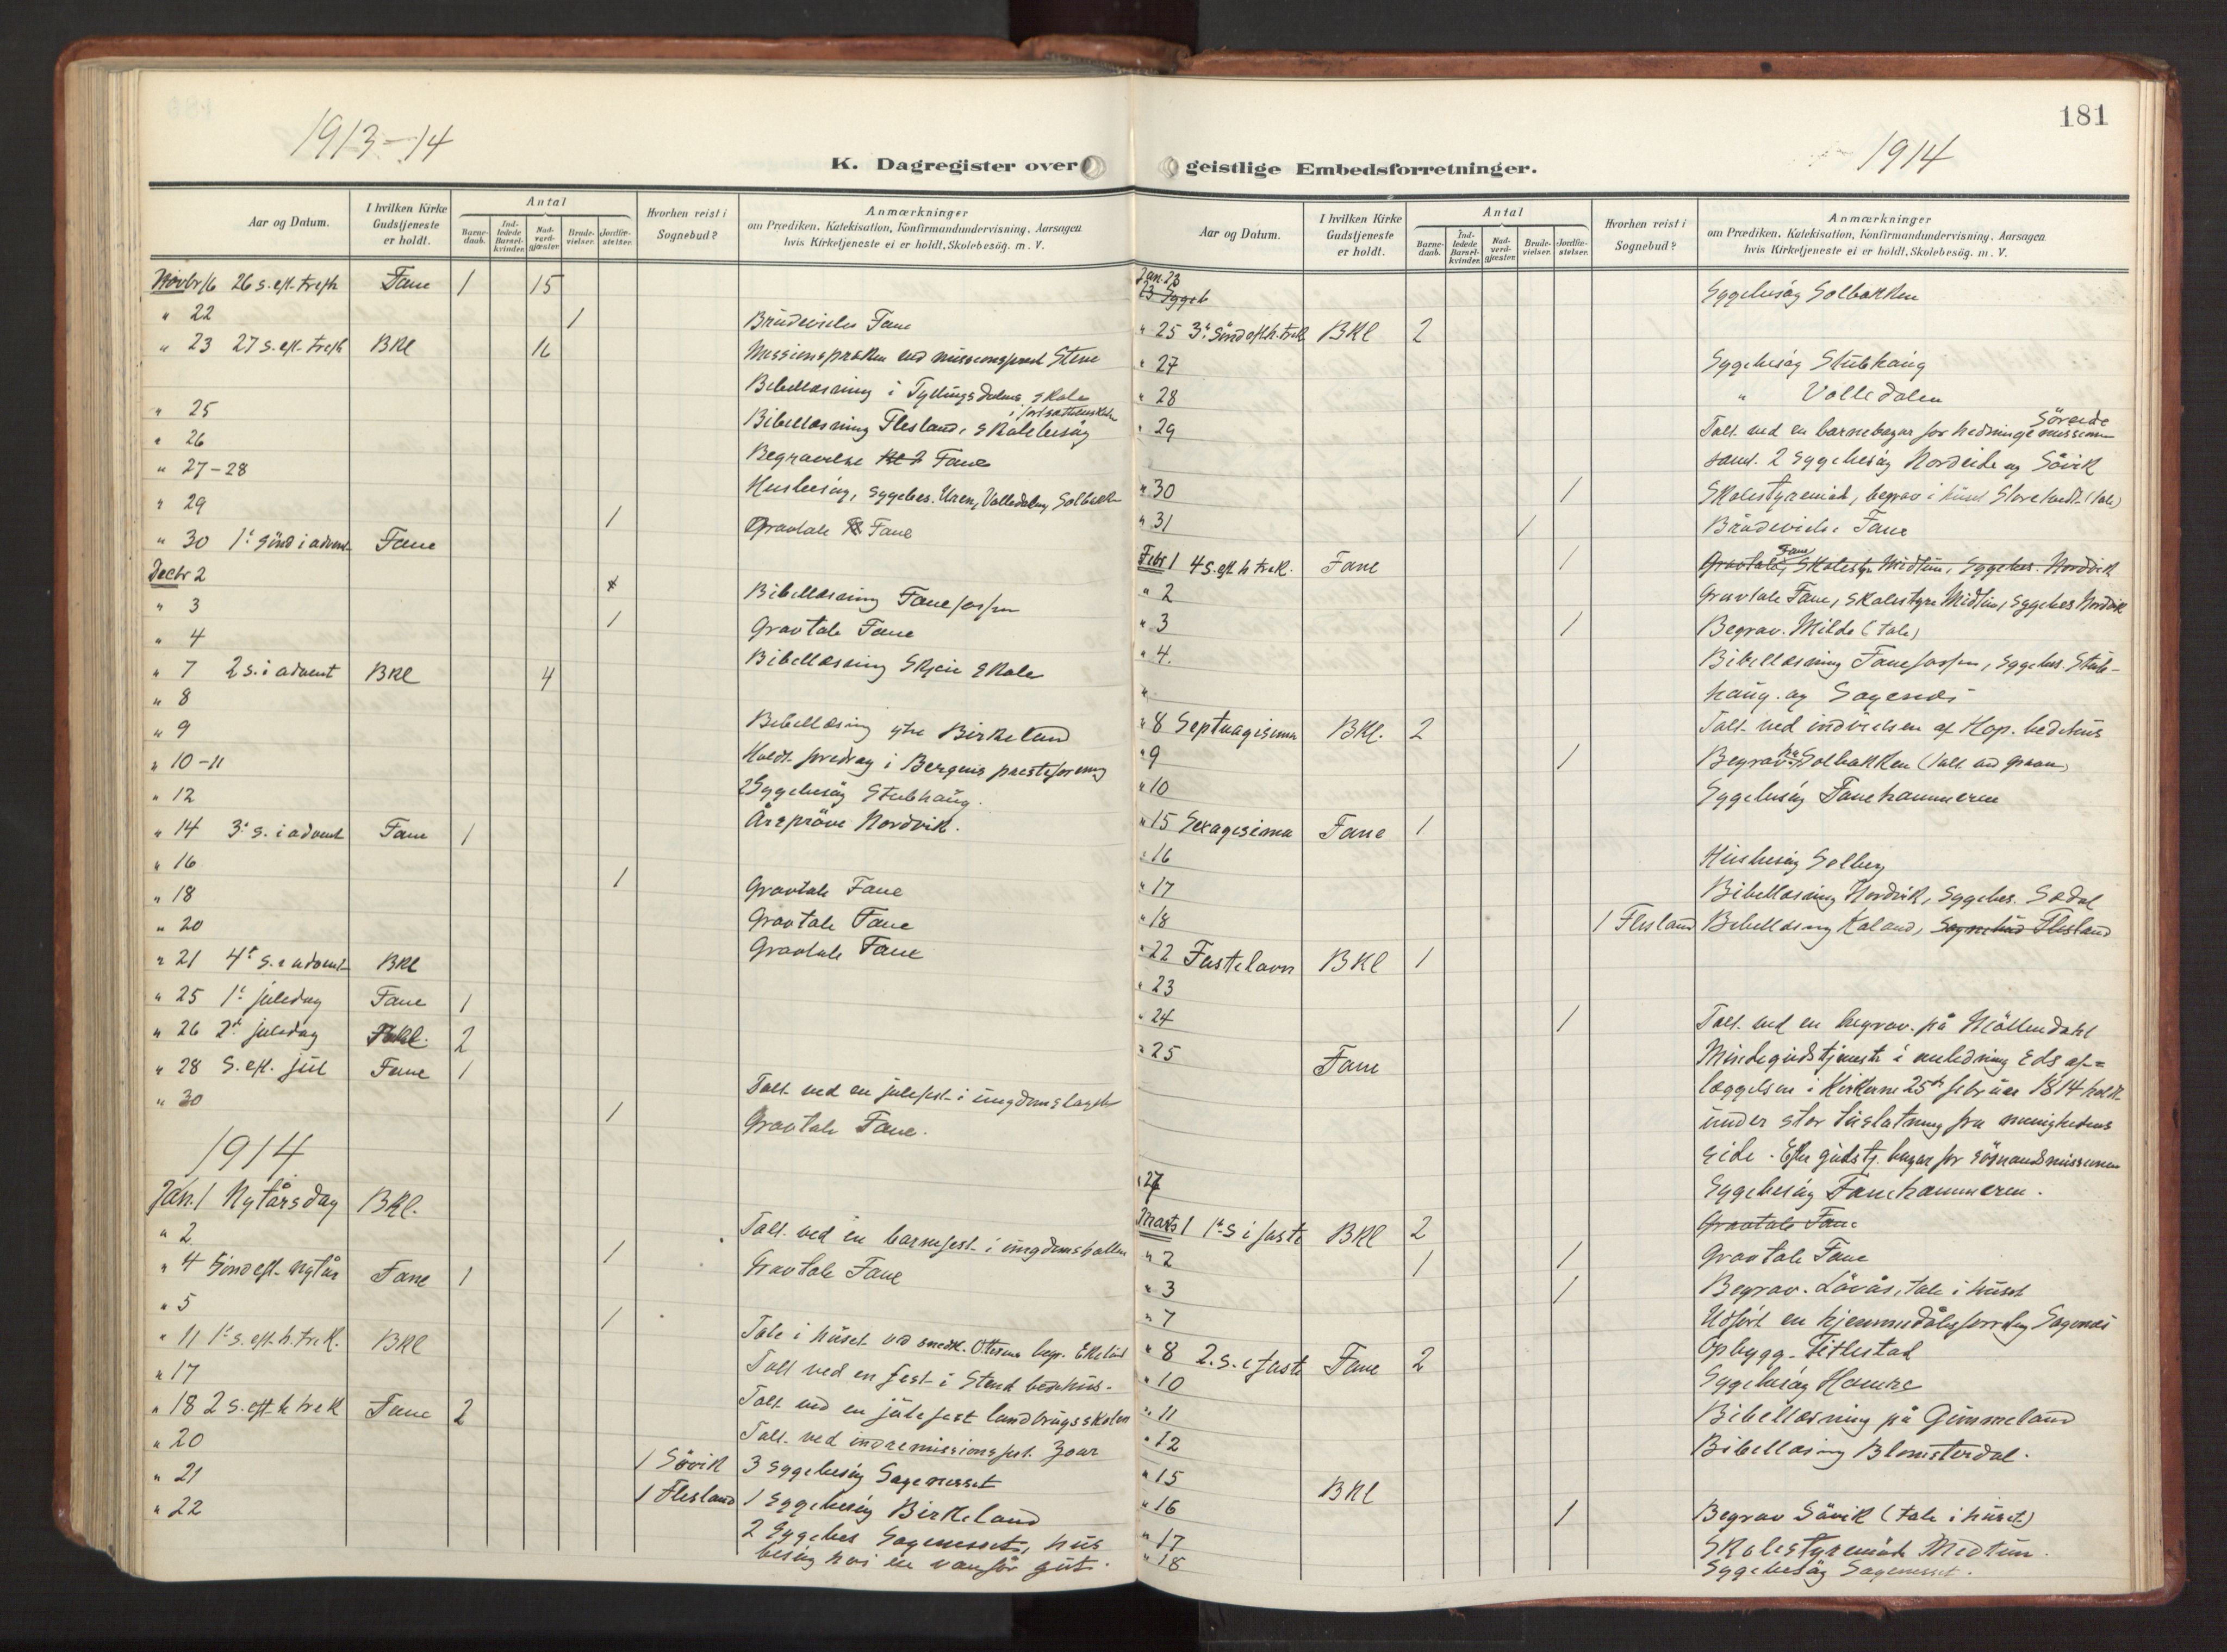 1913-14
K. Dagregister over
Aar og Datum.
I hvilken Kirke Gudstjeneste er holdt.
Antal
Barne-daab.
Ind-ledede Barsel-kvinder.
Nad-verd-gjæster.
Brude-vielser.
Jordfæ-stelser.
Hvorhen reist i Sognebud?
Anmærkninger
om Prædiken, Katekisation, Konfirmandundervisning, Aarsagen
hvis Kirketjeneste ei er holdt, Skolebesög. m. V.
Novbr 16 26 s. eft. trefh Fane 1 15
" 22 1 Brudevielse Fane
" 23 27 s. eft. trefh BKl 16 Missionspræken ved missionsprest Stene
Bibellæsning i Tyllingsdalens skole
" 25 Bibellæsning Flesland, skolebesög i fortsættelsesskolen
" 26 Begravelse Fane
" 27-28 Husbesög, sygebes. Uren, Volledalen, Solbakk
" 29 1 Gravtale Fane
" 30 1ste sönd i advent Fane
Decbr 2
" 3 Bibellæsning Fanefossen
" 4 1 Gravtale Fane
" 7 2 s. i advent BKl 4 Bibellæsning Skjeie skole
" 8
" 9 Bibellæsning ytre Birkeland
" 10-11 Holdt foredrag i Bergens præsteforening
" 12 2 Sygebesög Stubhaug.
" 14 3die s. i advent Fane 1 Årspröve Nordvik.
" 16
" 18 1 Gravtale Fane
" 20 Gravtale Fane
" 21 4de s. i advent BKl Gravtale Fane
" 25 1ste juledag Fane 1
" 26 2den juledag BKl. 2
" 28 S. eft. jul Fane 1
" 30 Talt ved en julefest i ungdomslaget
1 Gravtale Fane.
1914
Jan. 1 Nytårsdag BKl.
" 2 Talt ved en barnefest i ungdomshallen
" 4 Sönd eft. nytår Fane 1 1 Gravtale Fane
" 5
" 11 1ste s. eft. h. trek. BKl 1 Tale i huset ved
" 17 Talt ved en fest i Stend bedehus.
" 18 2 s. eft. h trek Fane 2 Talt ved en julefest landbrugsskolen
" 20 Talt ved indremissionsfest Zoar
" 21 1 Sövik 3 sygebesög Sagenesset
" 22 1 Flesland 1 sygebesög Birkeland
2 Sygebes Sagenesset, hus
besög hos en vanför gut.
181
1914
geistlige Embedsforretninger.
Aar og Datum.
I hvilken Kirke Gudstjeneste er holdt.
Antal
Barne-daab.
Ind-ledede Barsel-kvinder.
Nad-verd-gjæster.
Brude-vielser.
Jordfæ-stelser.
Hvorhen reist i Sognebud?
Anmærkninger
om Prædiken, Katekisation, Konfirmandundervisning, Aarsagen
hvis Kirketjeneste ei er holdt, Skolebesög. m. V.
Jan. 23 Sygebesög Solbakken
" 25 3die Sönd eft h. trek BKl 2
" 27 Sygebesög Stubhaug
" 28 " Volledalen
" 29 Talt ved en barnebazar for hedningemissionen Söreide
samt. 2 sygebesög Nordeide og Sövik
" 30 1 Skolestyremöt, begrav i huset Storetvedt (tale)
" 31 1 Brudevielse Fane
Febr 1 4 s. eft h trek. Fane 1 Gravtale Fane, Skolestyr Midtun, Sygebes. Nordvik
" 2 Gravtale Fane, skolestyre Midtun, sygebes Nordvik
" 3 1 Begrav. Milde (tale)
" 4. Bibellæsning Fanefossen, sygebes. Stub-
" haug. og Sagenes
" 8 Septuagesima BKl. 2 Talt ved indvielsen af Hop. bedehus
" 9 1 Begrav. Solbakken (talt ved graven)
" 10 Sygebesög Fanehammeren
" 15 Sexagesima Fane 1
" 16 Husbesög Solberg
" 17 Bibellæsning Nordvik, sygebes. Sædal
" 18 1 Flesland Bibellæsning Kaland, Sognebud Flesland
" 22 Fastelavn BKl 1
" 23
" 24 1 Talt ved en begrav. på Möllendahl
" 25 Fane Mindegudstjeneste i anledning Eds af=
læggelsen i Kirkerne 25de februar 1814 holdt
under stor tilslutning fra menighedens
side. Efter gudstj. bazar for sömandsmissionen
" 27 Sygebesög Fanehammeren.
Marts 1 1ste s i faste BKl 2 Gravtale Fane
" 2 1 1 Gravtale Fane
" 3 1 Begrav. Lövås, tale i huset
" 7 Udfört en hjemmedåbsforretng Sagenes
" 8 2. s. i faste Fane 2 Opbygg. Titlestad
" 10 Sygebesög Hamre
" 11 Bibellæsning på Gimmeland
" 12 Bibellæsning Blomsterdal.
" 15 BKl
" 16 1 Begrav Sövik (tale i huset)
" 17 Skolestyremöde Midtun.
" 18 Sygebesög Sagenesset.